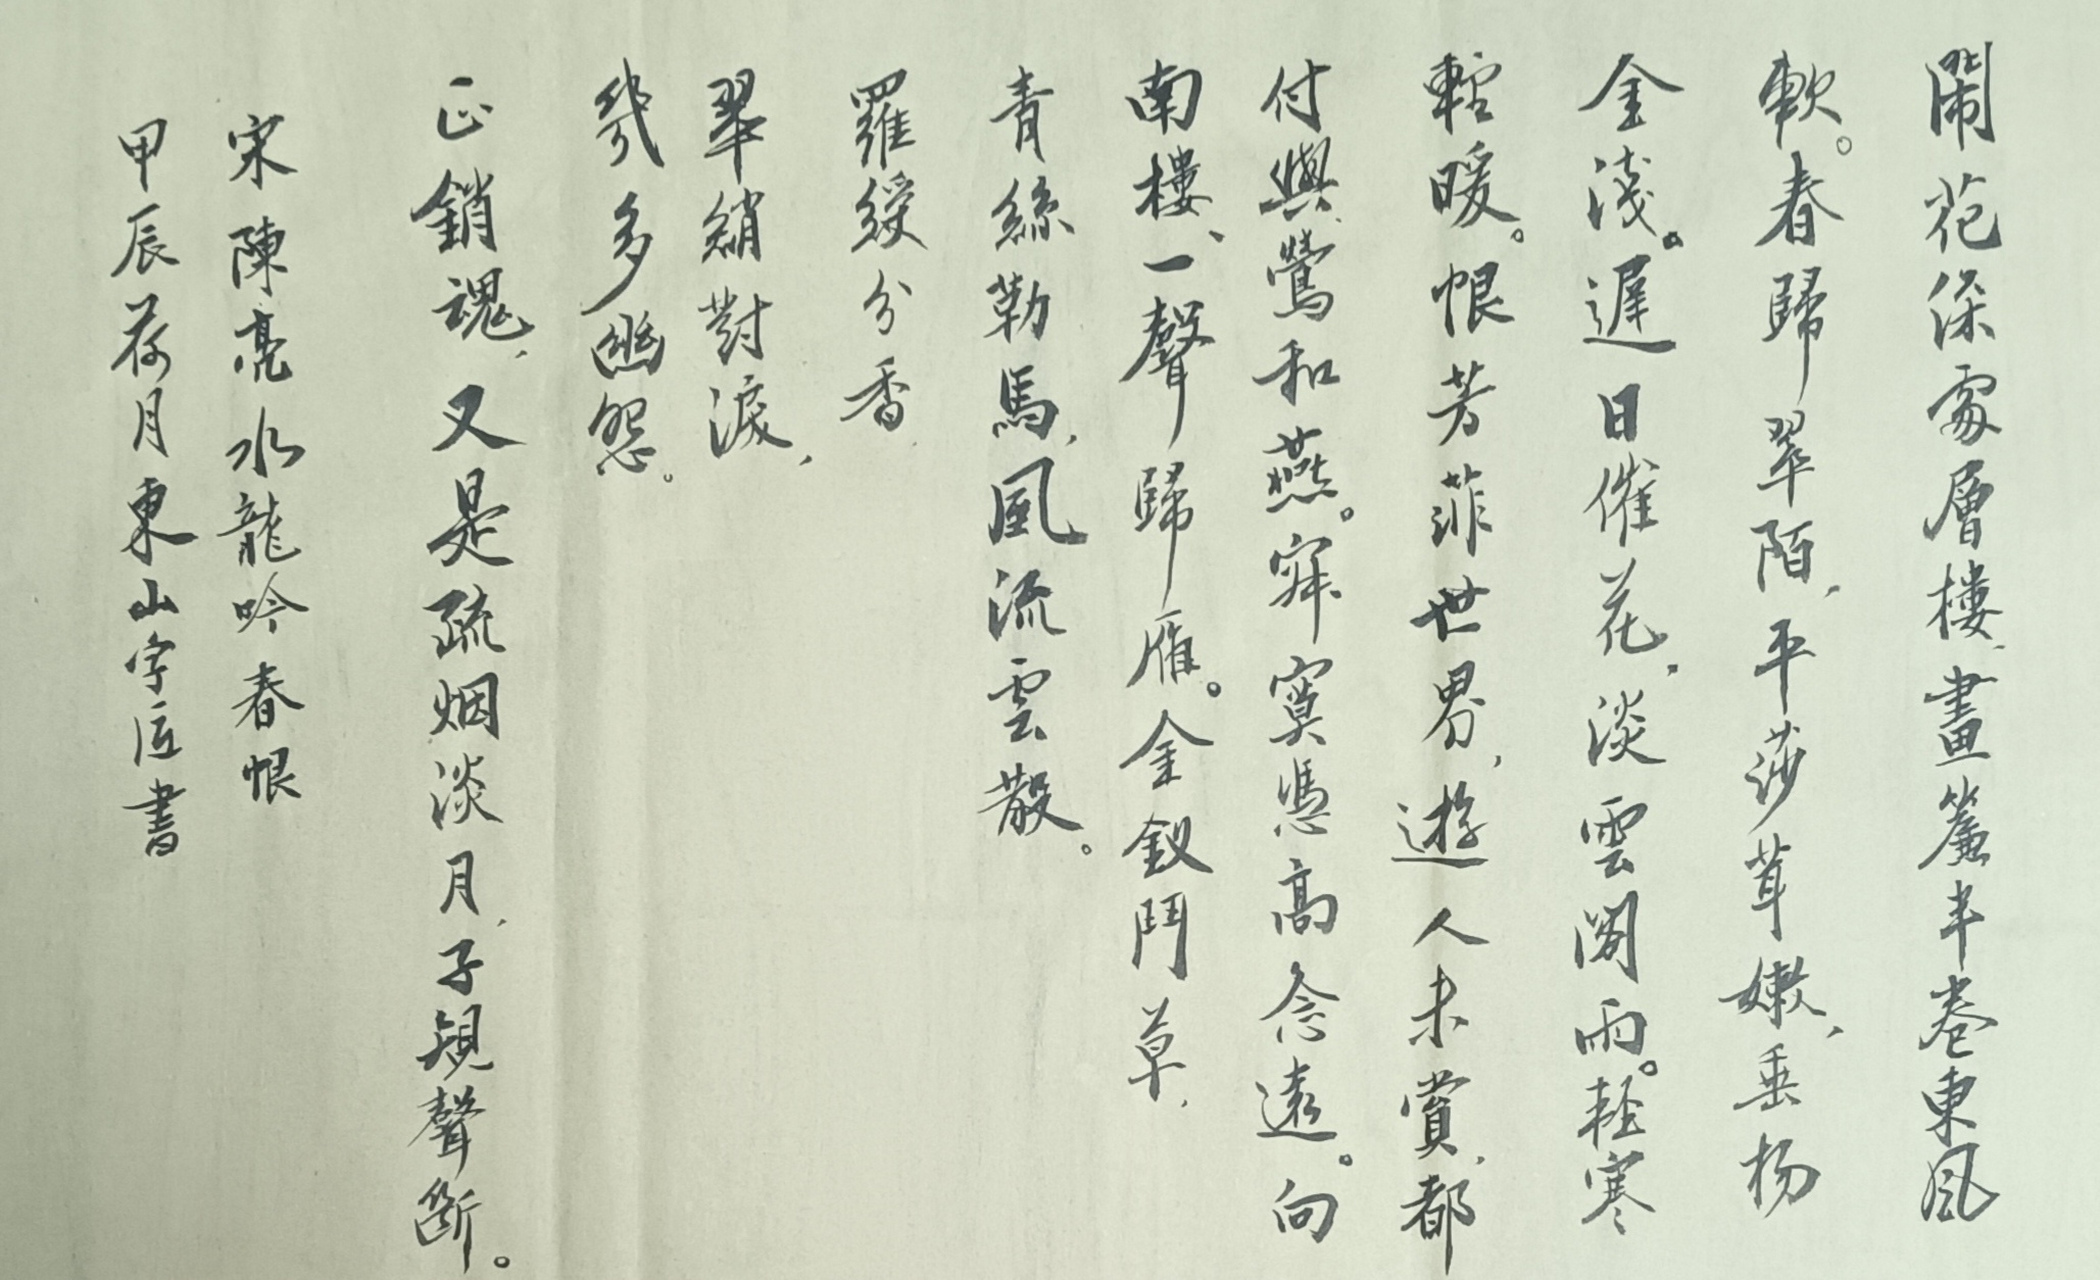 鬧花深處層樓、畫簾半卷東風
軟。春歸翠陌，平莎茸嫩，垂楊
金淺。遲日催花，淡雲閣雨。輕寒
輕暖。恨芳菲世界，遊人未賞，都
付與、鶯和燕。寂寞憑高念遠。向
南樓、一聲歸雁。金釵鬥草，
青絲勒馬，風流雲散。
羅綬分香，
翠綃對淚，
幾多幽怨。
正銷魂，又是疏烟淡月，子規聲斷。
宋陳亮水龍吟春恨
甲辰荷月東山字匠書